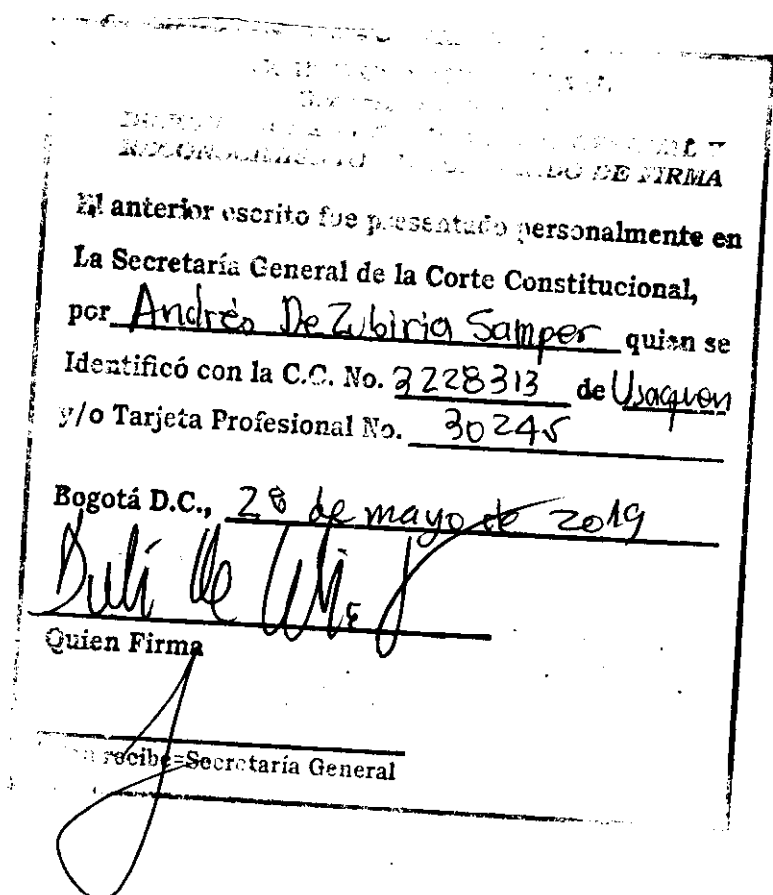 DE FIRMA
El anterior escrito fue presentado personalmente en
La Secretaría General de la Corte Constitucional,
por Andrés De Zubiria Samper quien se
Identificó con la C.C. No. 3228313 de Usaquen
y/o Tarjeta Profesional No. 30245
Bogotá D.C., 28 de mayo de 2019
Quien Firma
recibe=Secretaría General